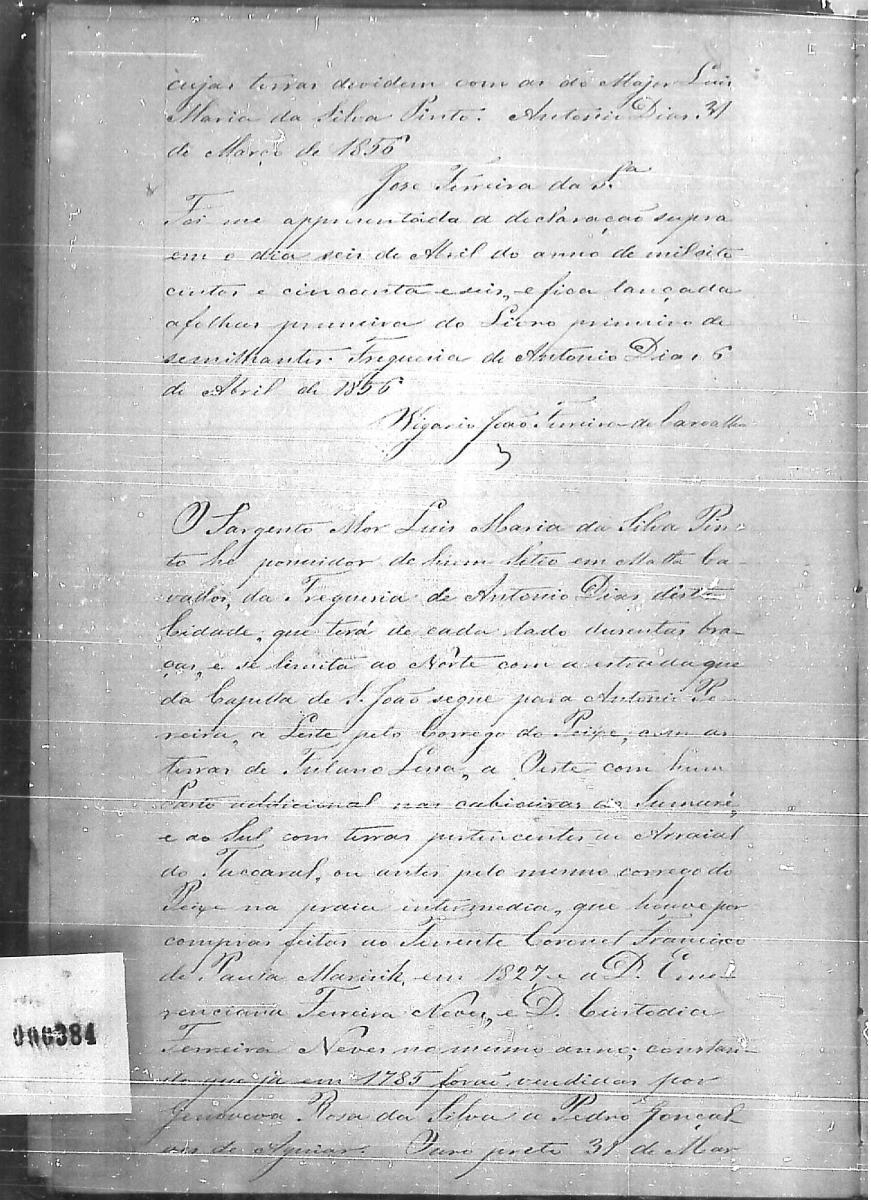 cujas terras devidem com as do Major Luis
Maria da Silva Pinto. Antonio Dias 31
de Março de 1856
Jose Ferreira da S.ª
Foi me appresentada a declaração supra
em o dia seis de Abril do anno de mil oito
centos e cincoenta e seis, e fica lançada
a folhas primeira do Livro primeiro de
semilhantes. Freguesia de Antonio Dias 6
de Abril de 1856
Vigario João Ferreira de Carvalho
O Sargento Mor Luis Maria da Silva Pin-
to he possuidor de hum Sitio em Matta Ca-
vallos, da Freguesia de Antonio Dias desta
Cidade, que terá de cada lado dusentas bra-
ças, e se limita ao Nórte com a estrada que
da Capella de S. João segue para Antonio Pe-
reira, a Leste pelo Corrego do Peixe, com as
terras de Fulano Lessa, a Oeste com hum
Pasto addicional nas cabiceiras do Sumaré,
e ao Sul com terras pertencentes ao Arraial
do Taccoaral, ou antes pelo mesmo corrego do
Peixe na praia intermedia, que houve por
compras feitas ao Tenente Coronel Francisco
de Paula em 1827 e a D. Eme-
renciana Ferreira Neves, e D. Custodia
Ferreira Neves no mesmo anno; constan-
do que já em 1785 foraõ vendidas por
Genoveva Rosa da Silva a Pedro Gonçal-
ves de Aguiar. Ouro preto 31 de Mar
000384